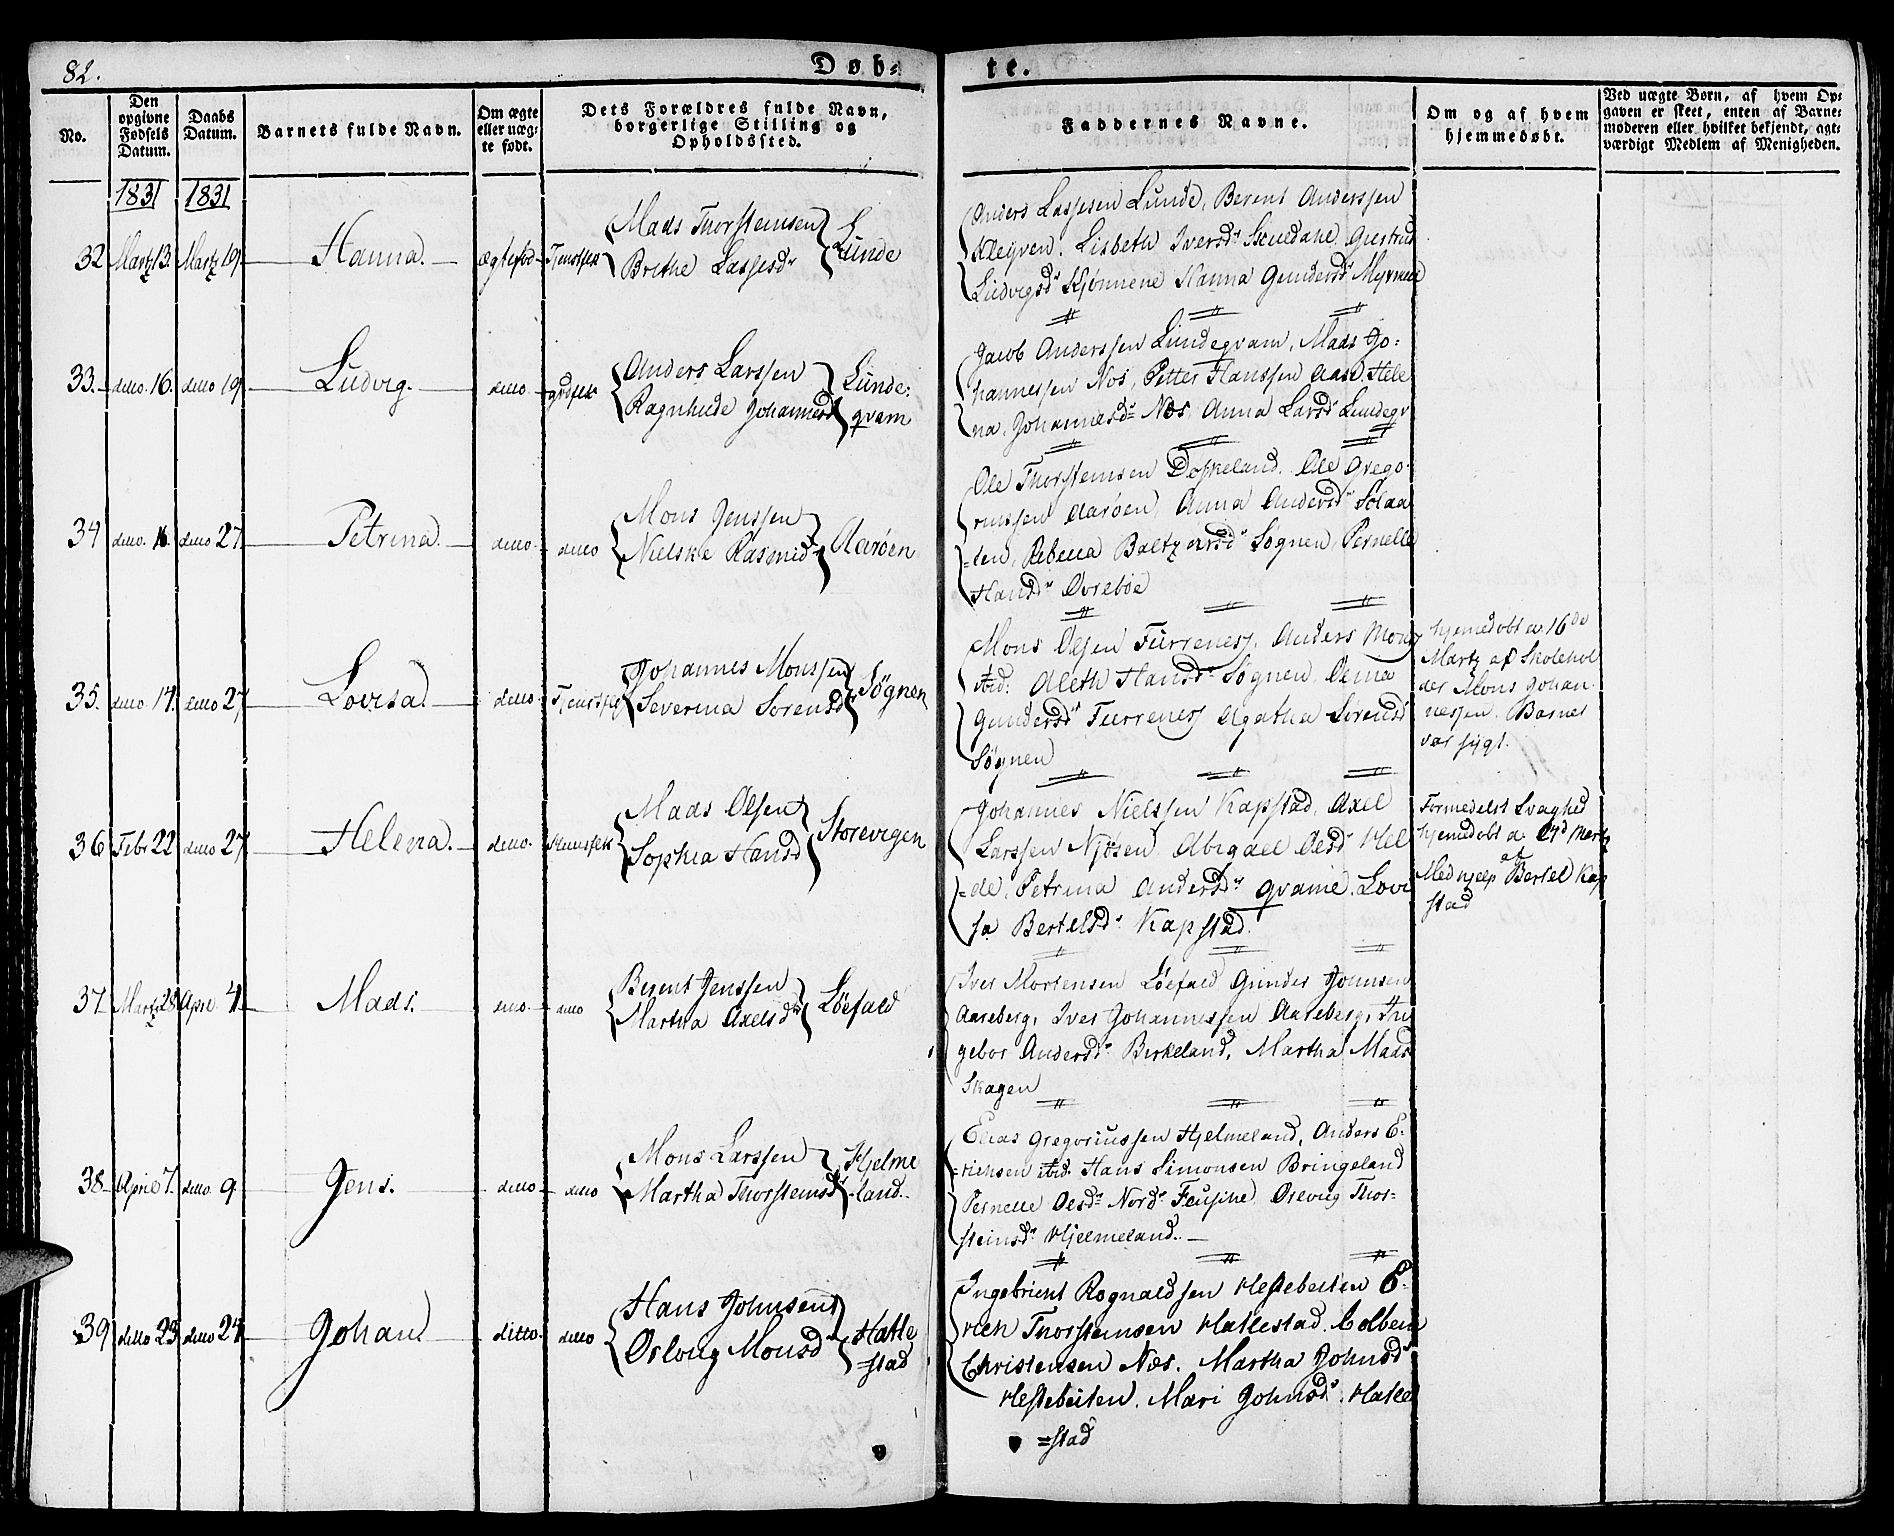 82.
Døb-
te.
No.
Den opgivne Fødsels Datum.
Daabs Datum.
Barnets fulde Navn.
Om ægte eller uægte født.
Dets Forældres fulde Navn, borgerlige Stilling og Opholdssted.
Faddernes Navne.
Om og af hvem hjemmedøbt.
Ved uægte Børn, af hvem Opgaven er skeet, enten af Barnemoderen eller hvilket bekjendt, agtværdigt Medlem af Menigheden.
1831 1831
32 Martz 13. Martz 19. Hanna.
Mads Thorsteinsen
Brithe Lassesd
Lunde
Anders Lassesen Lunde, Berent Anderssen
Kleyven. Lisbeth Iversdr
Ludvigsdr Hjønnene Hanna Gundersdr
33. ditto 16. ditto 19. Ludvig. ditto
Anders Larssen
Ragnhilde Johannesd
Lunde:
qvam
Jacob Anderssen Lundeqvam, Mads Jo:
hannessen Nos, Petter Hanssen Aase, Hele
na Johannesdr Nos, Anna Larsd Lundeqv
34 ditto 16. ditto 27. Petrina. ditto ditto
Mons Jenssen
Nielske Rasmid
Aarøen
Ole Thorsteinsen Døskeland. Ole Grego-
riussen Aarøen, Anna Andersdr Solaa
-den, Rebeca Baltzersdr Sognen, Pernelle
Hansdr Øvrebøe
35. ditto 14. ditto 27 Lovisa. ditto
Johannes Monssen
Severina Sørensd
Søgnen
Mons Olsen Furrenes, Anders Mons
ibid. Aleth Hansdr Søgnen,
Gundersdr Furrenes Agatha Sørensd
Søgnen
hjemedøbt d. 16de
Martz af Skolehol
der Mons Johan-
nessen. Barnet
var sygt.
36 Febr 22 ditto 27 Helena. ditto. Huusfolk
Mads Olsen
Sophia Hansd
Storevigen
Johannes Nielssen Kapstad, Axel
Larssen Njøsen, Abigael Olesdr Hel
-de, Petrina Andersdr Qvame, Lovi
sa Bertelsdr Kapstad.
Formedelst Svaghed
hjemedøbt d. Martz
Med hjelp af Bertel Kap
stad
37 Martz 28 April 4. Mads. ditto ditto
Berent Jenssen
Martha Axelsdr
Løefald
Iver Mortensen Løefald Gunder Johnsen
Aareberg, Iver Johannessen Aareberg, In
gebor Andersdr Birkeland, Martha Mads
Skagen
38 April 7. ditto 9. Jens. ditto ditto
Mons Larssen
Martha Thorsteinsd
Hjelme
-land.
Elias Gregoriussen Hjelmeland, Anders E-
richsen ibid. Hans Simonsen Bringeland
Pernelle Olesdr Nordr Orloug Thor-
steinsdr Hjelmeland.
39 ditto 23 ditto 24 Johan. ditto. ditto
Hans Johnsen
Orloug Monsd
Hatle
-stad
Ingebrient Rognaldsen Hestebeiten E-
rich Thorsteinsen Hatlestad. Colbein
Christensen Næs. Martha Johnsdr
Hestebeiten. Mari Johnsdr. Hatle
=stad